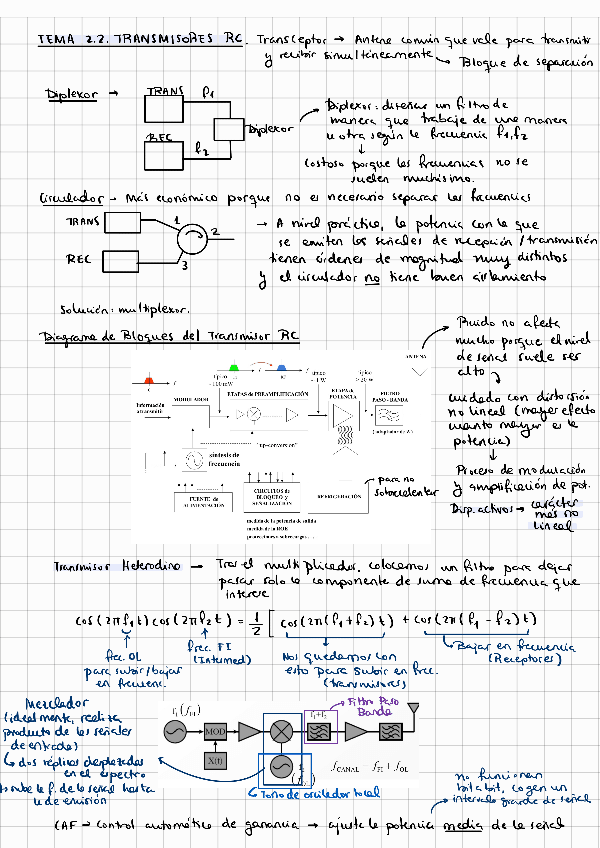 TEMA 2.2. TRANSMISORES RC. Transceptor → Antena común que vale para transmitir
y recibir simultáneamente → Bloque de separación
Diplexor →
TRANS
f1
REC
f2
Diplexor
Diplexor: diseñar un filtro de
manera que trabaje de una manera
u otra según la frecuencia f1, f2
↓
Costoso porque las frecuencias no se
suelen muchísimo.
Circulador → Más económico porque no es necesario separar las frecuencias
TRANS
REC
1
2
3
→ A nivel práctico, la potencia con la que
se emiten las señales de recepción/transmisión
tienen órdenes de magnitud muy distintos
y el circulador no tiene buen aislamiento
Solución: multiplexor.
Diagrama de Bloques del Transmisor RC
Ruido no afecta
mucho porque el nivel
de señal suele ser
alto
cuidado con distorsión
no lineal (mayor efecto
cuanto mayor es la
potencia)
↓
Proceso de modulación
y amplificación de pot.
Disp. activos → carácter
más no
lineal
ANTENA
típico
-100 mW
típico
-1 W
típico
> 20 W
Información
a transmitir
MODULADOR
ETAPAS de PREAMPLIFICACIÓN
ETAPA de
POTENCIA
FILTRO
PASO-BANDA
(adaptador de Z)
"up-conversion"
síntesis de
frecuencia
FUENTE de
ALIMENTACIÓN
CIRCUITOS de
BLOQUEO y
SEÑALIZACIÓN
REFRIGERACIÓN
para no
sobrecalentar
medida de la potencia de salida
medida de la ROE
protecciones a sobrecargas...
Transmisor Heterodino → Tras el multiplicador, colocamos un filtro para dejar
pasar solo la componente de suma de frecuencia que
interese
cos(2πf1t)cos(2πf2t) = 1/2 [cos(2π(f1+f2)t) + cos(2π(f1-f2)t)
frec. OL
para subir/bajar
en frecuenc.
frec. FI
(Intermed)
Nos quedamos con
esto para subir en frec.
(transmisores)
Bajar en frecuencia
(Receptores)
Mezclador
(idealmente, realiza
producto de las señales
de entrada)
↳ dos réplicas desplazadas
en el espectro
f1(fFI)
MOD
X(t)
f1+f2
Filtro Paso
Banda
fCANAL = fFI + fOL
Tono de oscilador local
no funcionan
bit a bit, cogen un
intervalo grande de señal
CAF → control automático de ganancia → ajusta la potencia media de la señal